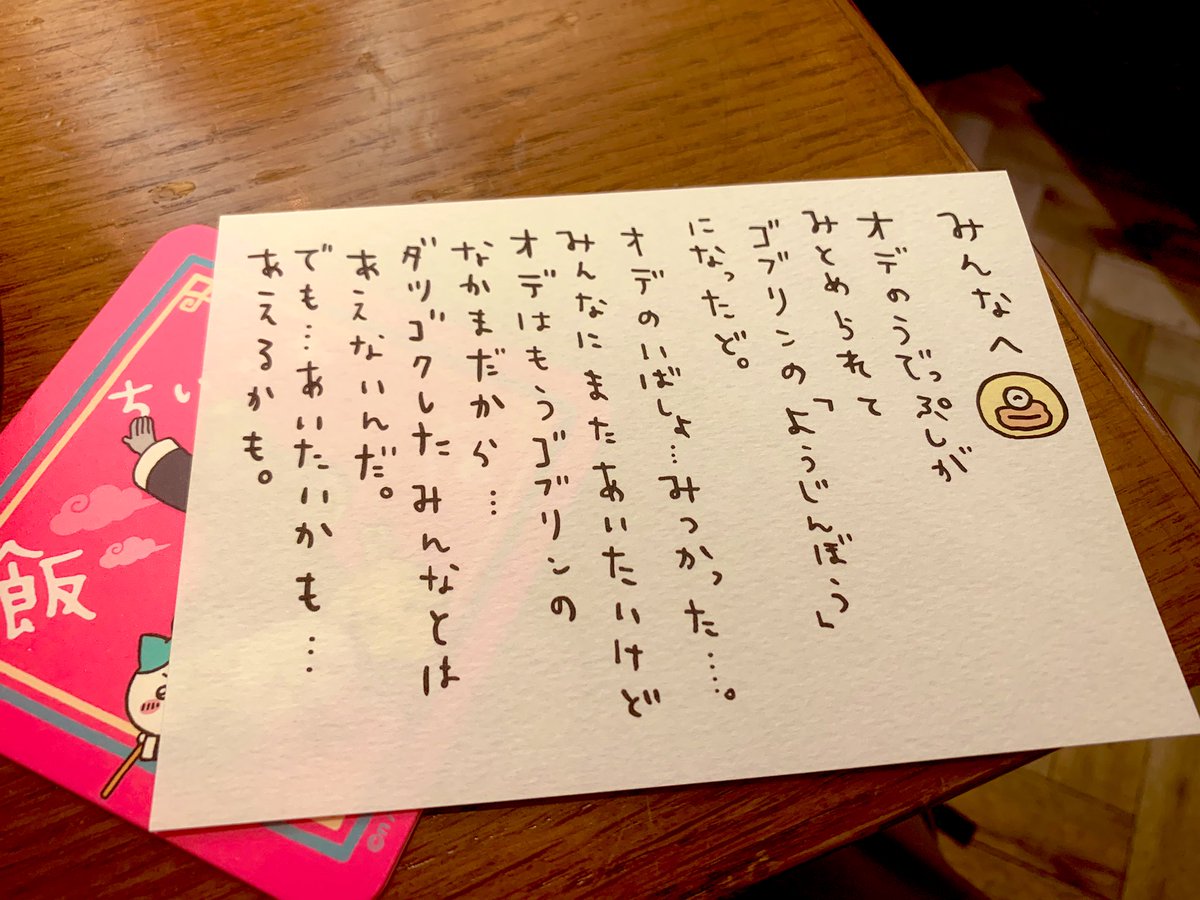 みんなへ
オデのうでっぷしが
みとめられて
ゴブリンの「ようじんぼう」
になったど。
オデのいばしょ…みつかった……。
みんなにまたあいたいけど
オデはもうゴブリンの
なかまだから…
ダツゴクした みんなとは
あえないんだ。
でも…あいたいかも…
あえるかも。
ちい
飯